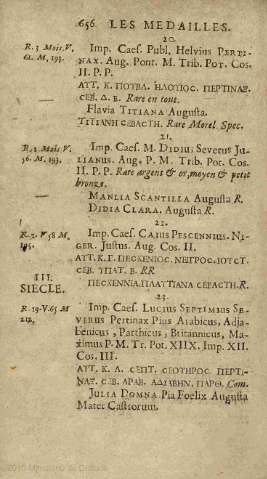 656 LES MEDAILLES.
20.
R. 3 Mois. V. Imp. Caes. Publ. Helvius PERTI-
62. M. 193. NAX. Aug. Pont. M. Trib. Pot. Cos.
II. P. P.
ΑΥΤ. Κ. ΠΟΥΒΛ. ΗΛΟΥΙΟΣ. ΠΕΡΤΙΝΑΞ.
CEB. Δ. Β. Rare en tout.
Flavia TITIANA Augusta.
ΤΙΤΙΑΝΗ CEBACTH. Rare Morel Spec.
21.
R. 2. Mois. V. Imp. Caes. M. DIDIUS Severus JU-
56. M. 193. LIANUS. Aug. P. M. Trib. Pot. Cos.
II. P. P. Rare argent & or, moyen & petit
bronze.
MANLIA SCANTILLA Augusta R.
DIDIA CLARA. Augusta R.
22.
Imp. Caes. CAIUS PESCENNIUS. NI-
GER. Justus. Aug. Cos. II.
ΑΥΤ. Κ. Γ. ΠΕCΚΕΝΙΟC. ΝΕΙΓΡΟC. ΙΟΥCΤ.
CEB. ΥΠΑΤ. Β. RR
ΠΕCΚΕΝΝΙΑ. ΠΛΑΥΤΙΑΝΑ CEBACTH. R.
III.
SIECLE.
23.
R. 19. V. 65 M Imp. Caes. LUCIUS SEPTIMIUS SE-
VERUS Pertinax Pius Arabicus, Adja-
benicus, Parthicus, Britannicus, Ma-
ximus P. M. Tr. Pot. XIIX. Imp. XII.
Cos. III.
ΑΥΤ. Κ. Λ. CΕΠΤ. CΕΟΥΗΡΟC. ΠΕΡΤΙ-
ΝΑΞ. CΕΒ. ΑΡΑΒ. ΑΔΙΑΒΗΝ. ΠΑΡΘ. Com.
JULIA DOMNA Pia Foelix Augusta
Mater Castrorum.